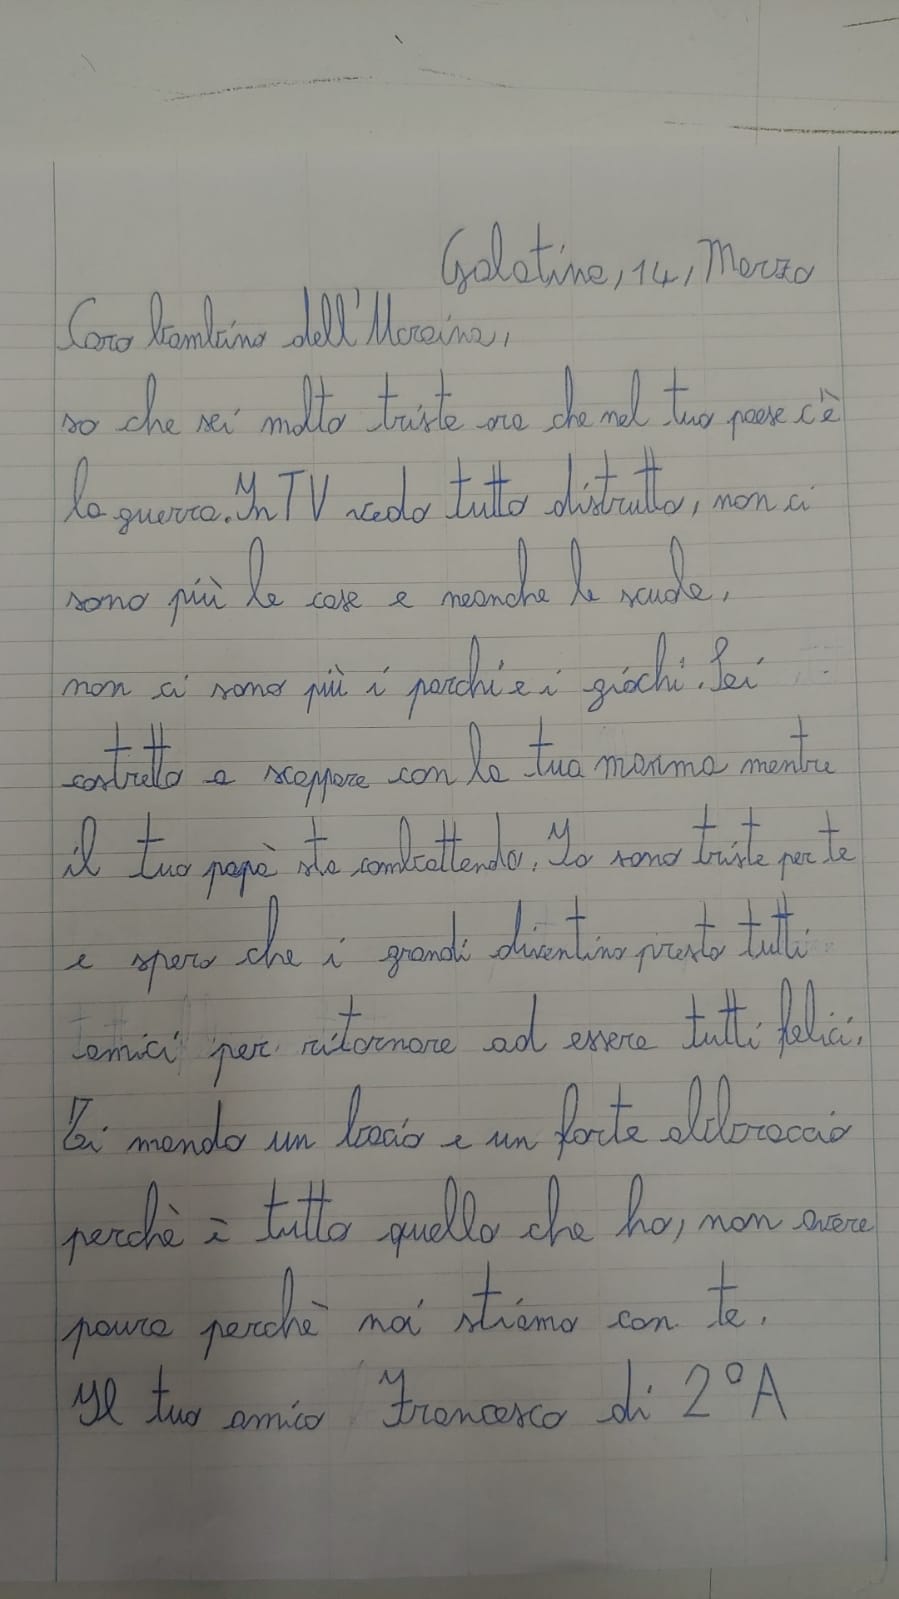 Galatina, 14, Marzo
Caro bambino dell'Ucraina,
so che sei molto triste ora che nel tuo paese c'è
la guerra. In TV vedo tutto distrutto, non ci
sono più le case e neanche le scuole,
non ci sono più i parchi e i giochi. Sei
costretto a scappare con la tua mamma mentre
il tuo papà sta combattendo. Io sono triste per te
e spero che i grandi diventino presto tutti
amici per ritornare ad essere tutti felici.
Ti mando un bacio e un forte abbraccio
perchè è tutto quello che ho, non avere
paura perchè noi stiamo con te.
Il tuo amico Francesco di 2°A